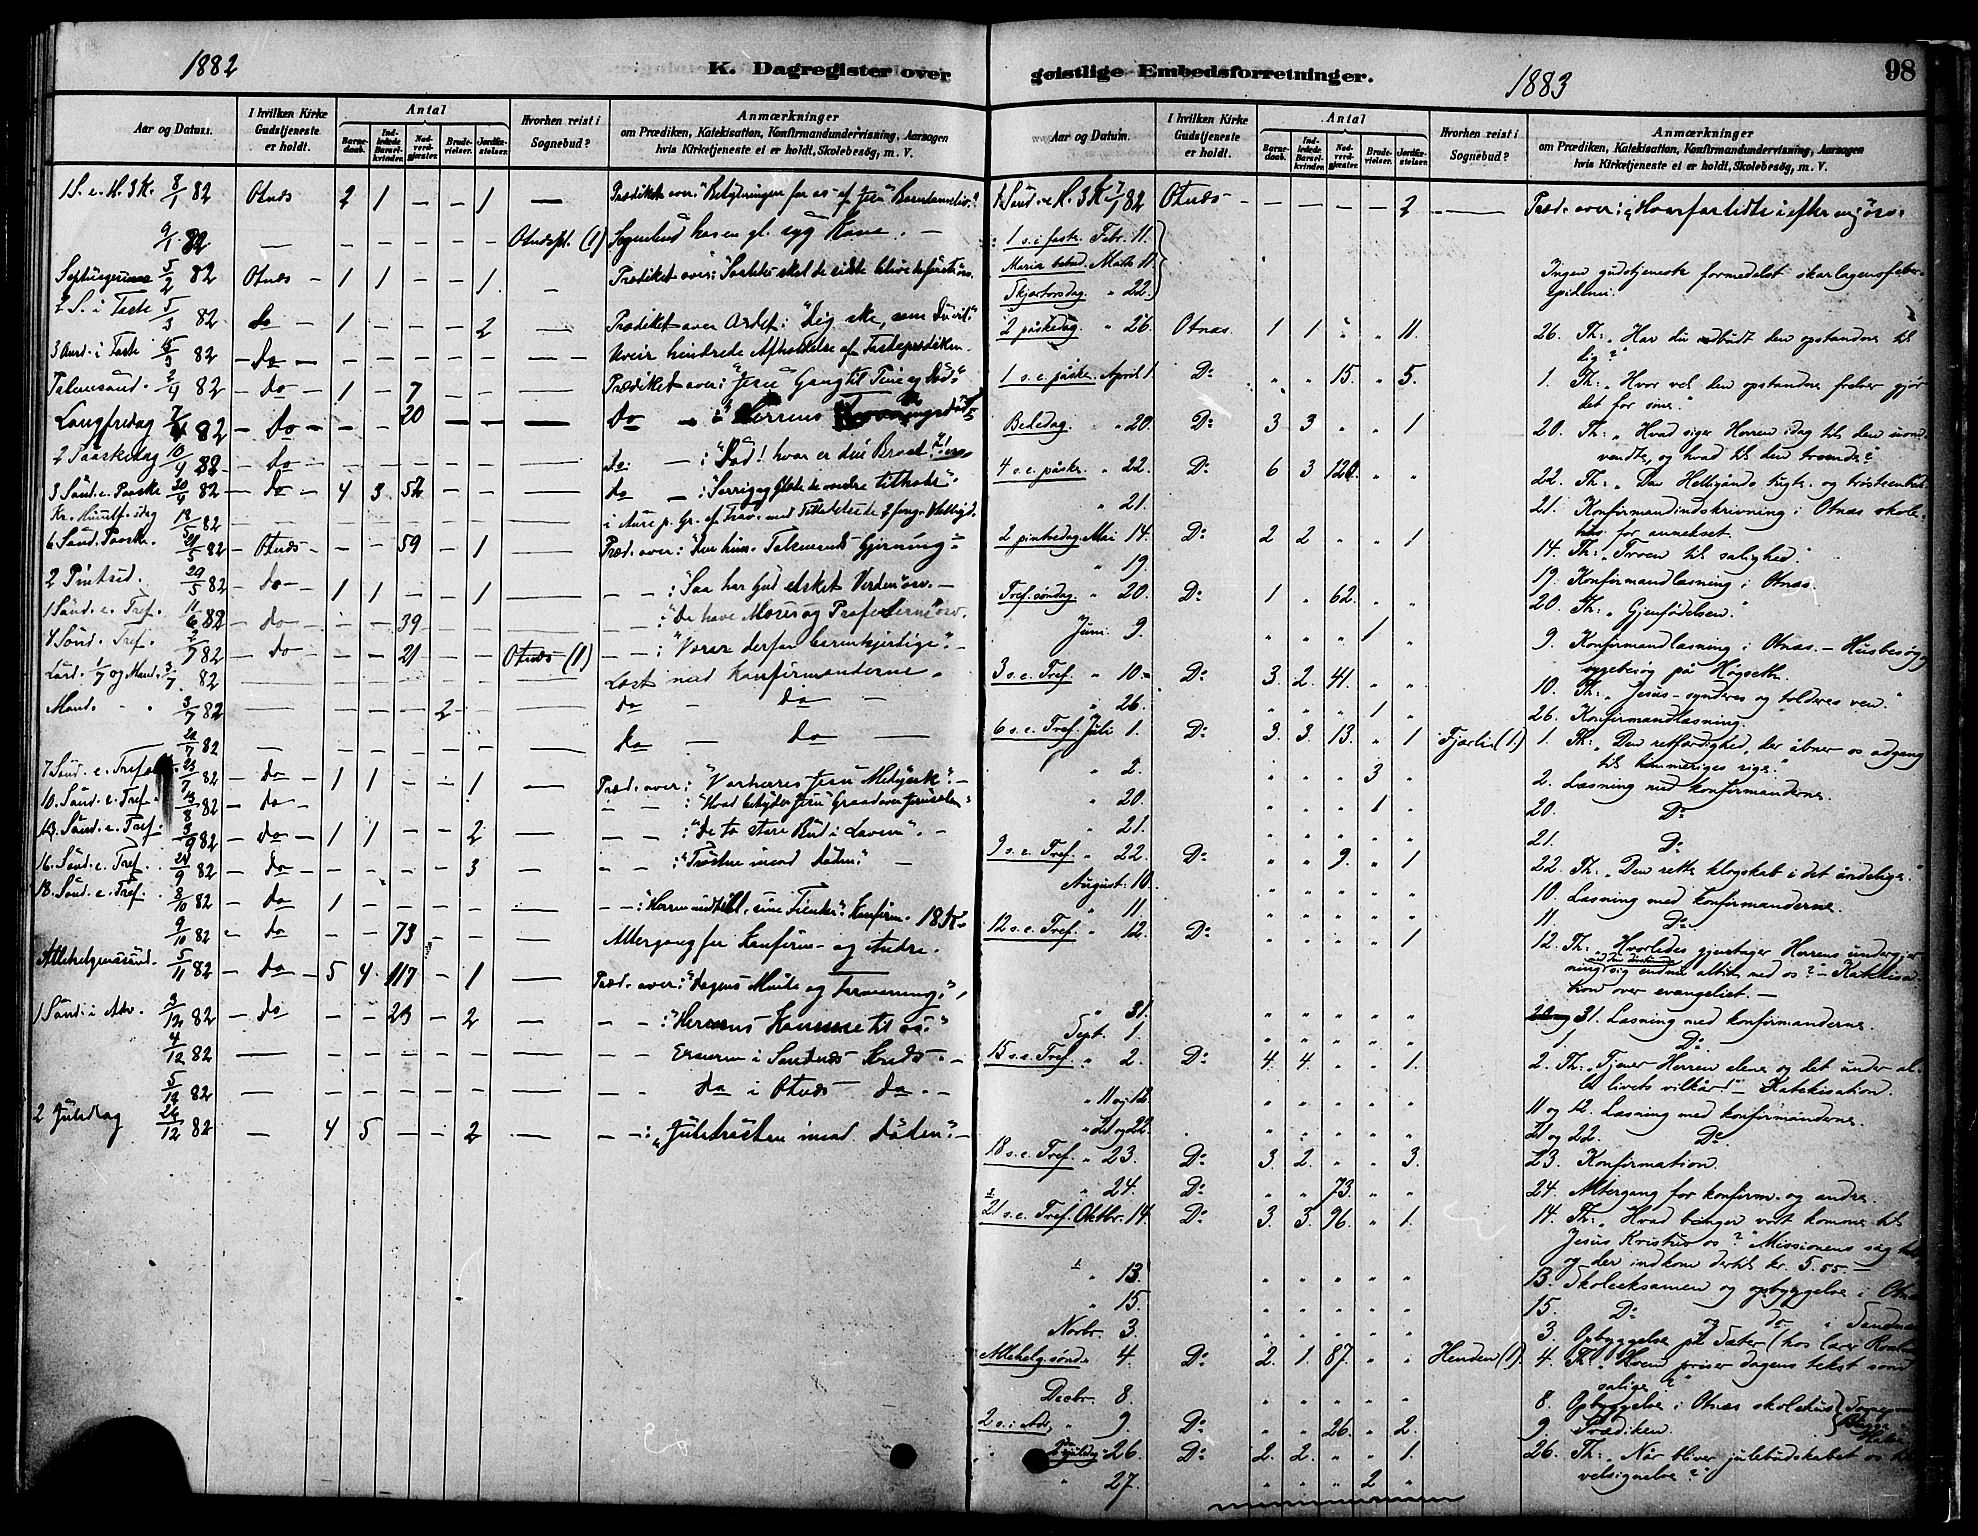 1882
K. Dagregister over
Aar og Datum.
I hvilken Kirke Gudstjeneste er holdt.
Antal
Barnedaab.
Indledede Barselkvinder.
Nadverdgjester.
Brudevielser.
Jordfæstelser.
Hvorhen reist i Sognebud?
Anmærkninger
om Prædiken, Katekisation, Konfirmandundervisning, Aarsagen
hvis Kirketjeneste ei er holdt, Skolebesøg, m. V.
1 S. e. H. 3 K. 8/1 82 Otnæs 2 1 — — 1 — Prædiket over: "Betydningen for os af Jesu Barndomsliv."
9/1 82 — (1) Sognebud hos en gl. syg Kone. —
5/2 82 Otnæs 1 1 — — 1 — Prædiket over: skal de sidste blive de første
2 S. i Faste 5/3 82 do — 1 — — — 2 — Prædiket over Ordet: "Dig ske, som du vil."
3 i Faste 82 — do — — — — — — Uveir hindrede Afholdelse af Fasteprædiken.
Palmesønd. 2/4 82 — do — 1 — 7 — — — Prædiket over: "Jesu Gang til Pine og Død."
Langfredag 7/4 82 — do — — — 20 — — — do — : Herrens
2 Paaskedag 10/4 82 — do — — — — — — — do. — : "Død! hvor er din Brod?"
3 Sønd. e. Paaske 30/4 82 — do — 4 3 52 — — — do — : Sorrig og Glæde de vandre tilhobe".
Kr. Himmelf.sdag 18/5 82 — — — — — — — i Aure p. Gr. af
6 Sønd. Paaske. 21/5 82 — Otnæs — — — 59 — 1 — Præd. over: Talsmands Gjerning"
2 Pintsed. 29/5 82 — do — 1 1 — — 1 — — — : "Saa har Gud elsket Verden" osv. —
1 Sønd. e. Tref. 11/6 82 — do — — — 39 — — — — — : "De have Moses og Profeterne" osv.
4 Sønd. Tref. 2/7 82 — do — — — 21 — — Otnæs (1) — — : "Værer derfor barmhjertige". —
Lørd. 1/7 og Mand. 3/7 82 — — — — — — — Læst med Konfirmanderne.
Mand. — 3/7 82 — — — — 2 — — do — do —
7/82 — — — — — — — do — do —
7 Sønd. e. Tref. 23/7 82 — do 1 1 — — 1 — Præd. over: "Vor Herres Jesu — "
10. Sønd. e. Tref. 13/8 82 — do — — — — — — — — : "Hvad betyder Jesu Graad over Jerusalem"
13. Sønd. e. Tref. 3/9 82 — do — 1 1 — — 2 — — — : "De to store Bud i Loven". —
16. Sønd. e. Tref. 24/9 82 — do — — — — 3 — — — : "Trøsten imod Døden." —
18. Sønd. e. Tref. 8/10 82 — do — 1 — — — — — — — : Herren sine Fiender". Konfirm. 18
9/10 82 — do — — — 73 — — — Altergang for Konfirm. og Andre.
Allehelgenssønd. 5/11 82 — do 5 4 117 — 1 — Præd. over: "Dagens Minde og
1 Sønd. i Adv. 3/12 82 — do — — 23 — 2 — — — : "Herrens Komme til os."
4/12 82 — — — — — — — Examen i Sandnæs Kreds. —
5/12 82 — — — — — — — do i Otnæs — do. —
2 Juledag 26/12 82 — 4 5 — — 2 — — : "Juletrøsten imod Døden". —
geistlige Embedsforretninger.
1883
98
Aar og Datum.
I hvilken Kirke Gudstjeneste er holdt.
Antal
Barnedaab.
Indledede Barselkvinder.
Nadverdgjester.
Brudevielser.
Jordfæstelser.
Hvorhen reist i Sognebud?
Anmærkninger
om Prædiken, Katekisation, Konfirmandundervisning, Aarsagen
hvis Kirketjeneste ei er holdt, Skolebesøg, m. V.
1 Sønd. e. H. 3 K 7/1 82 Otnæs — — — — — 2 — Præd. over:
1 s. i faste. Febr. 11.
Maria bebud. Mars 11. Ingen gudstjeneste formedelst skarlagensfeber-
Skjærtorsdag " 22. epidemi.
2 påskedag. " 26. Otnæs. 1 1 " " 11. 26. Th: "Har du indbudt den opstandne til
dig?"
1 s. e. påske. April 1. Do " " 15. " 5. 1. Th: "Hvor vel den opstandne frelser gjør
det for sine."
Bededag. " 20. Do 3 3 " " 1 20. Th: "Hvad siger Herren idag til den uomd-
vendte, og hvad til den troende?"
4 s. e. påske. " 22. Do 6 3 120. " " 22. Th: "Den Helligånds tugte- og
" 21. 21. Konfirmandindskrivning i Otnæs skole-
hus for annekset.
2 pintsedag. Mai 14. Do 2 2 " " 1 14. Th: "Troen til salighed".
" 19. 19. Konfirmandlæsning i Otnæs.
Tref. søndag. " 20. Do 1 " 62. " " 20. Th: "Gjenfødelsen."
Juni 9. " " " 1 " 9. Konfirmandlæsning i Otnæs. — Husbesøg,
sygebesøg på Høgset.
3 s. e. Tref. " 10. Do 3. 2. 41. " " 10. Th: "Jesus — synderes og tolderes ven."
" 26. " " " 1 " 26. Konfirmandlæsning.
6 s. e. Tref. Juli 1. Do 3. 3. 13. " 1 Fjærlie (1.) 1. Th: "Den retfærdighed, der åbner os adgang
til himmeriges rige."
" 2. " " " 3 " 2. Læsning med konfirmanderne.
" 20. " " " 1 " 20. Do
" 21. " " " " " 21. Do
9 s. e. Tref. " 22. Do " " 9. " 1 22. Th: "Den rette klogskab i det åndelige."
August. 10. " " " " " 10. Læsning med konfirmanderne.
" 11 " " " " " 11. Do
12 s. e. Tref. " 12. Do " " " " 1 12. Th: "Hvorledes gjentager Herrens undergjer-
ning sig endnu altid med os?" — Katekisa-
tion over evangeliet. —
" 31. " " " " " 31. Læsning med konfirmanderne.
Sept. 1. " " " " " 1. Do
15 s. e. Tref. " 2. Do 4. 4. " " 1. 2. Th: "Tjener Herren alene og det under al-
le livets vilkår!" — Katekisation.
" 11 og 12. " " " " " 11 og 12. Læsning med konfirmanderne.
" 21 og 22. " " " " " 21 og 22. Do
18 s. e. Tref. " 23. Do 3. 2. " " 3. 23. Konfirmation.
" 24. Do " " 73. " " 24. Altergang for konfirm. og andre.
21 s. e. Tref. Oktbr. 14. Do 3. 3. 96. " 1. 14. Th: "Hvad bringer vort komme til
Jesus Kristus os?" Missionens sag
og der indkom dertil kr. 5.55 —
" 13. " " " " " 13. Skoleeksamen og opbyggelse i
" 15. " " " " " 15. Do og do i
Novbr. 3. " " " " " 3. Opbyggelse på Sæter (hos lærer
Allehelg. sønd. 4. Do 2. 1. 87. " " Henden (1). 4. Th: "Hvem priser dagens tekst som
salige?"
Decbr. 8. " " " " " 8. Opbyggelse i Otnæs skolehus
2 s. i Adv. " 9. Do " " 26. " 2. 9. Prædiken.
2 juledag " 26. Do 2. 2. " " 1. 26. Th: "Når bliver julebudskabet os til
velsignelse?"
" 27. " " " 2 "